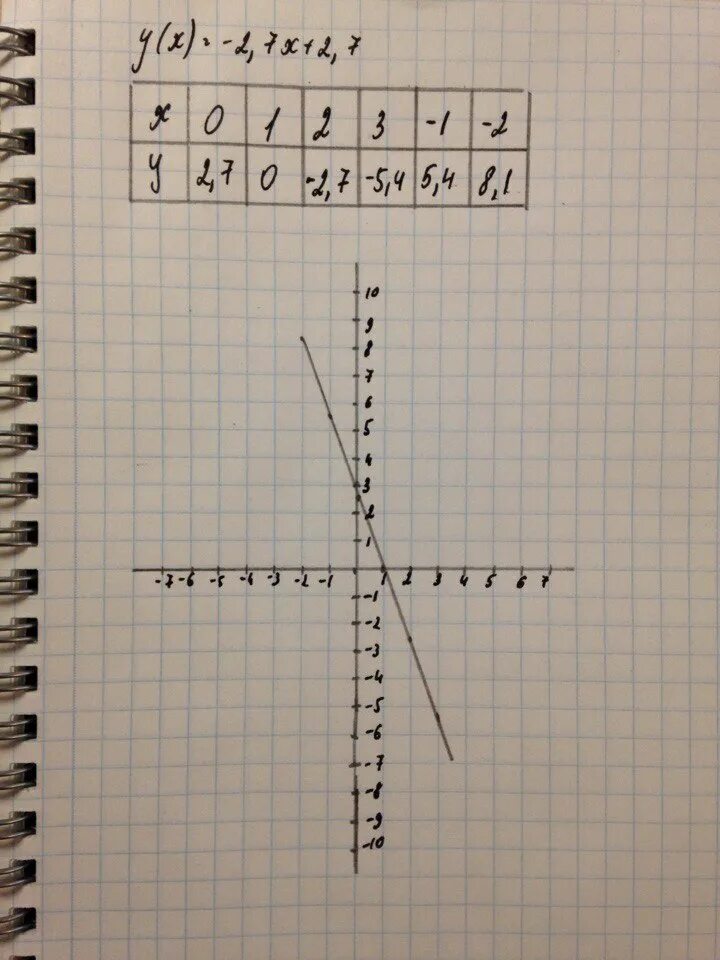 y(x) = -2,7x+2,7
x 0 1 2 3 -1 -2
y 2,7 0 -2,7 -5,4 5,4 8,1
10
9
8
7
6
5
4
3
2
1
-7 -6 -5 -4 -3 -2 -1 1 2 3 4 5 6 7
-1
-2
-3
-4
-5
-6
-7
-8
-9
-10